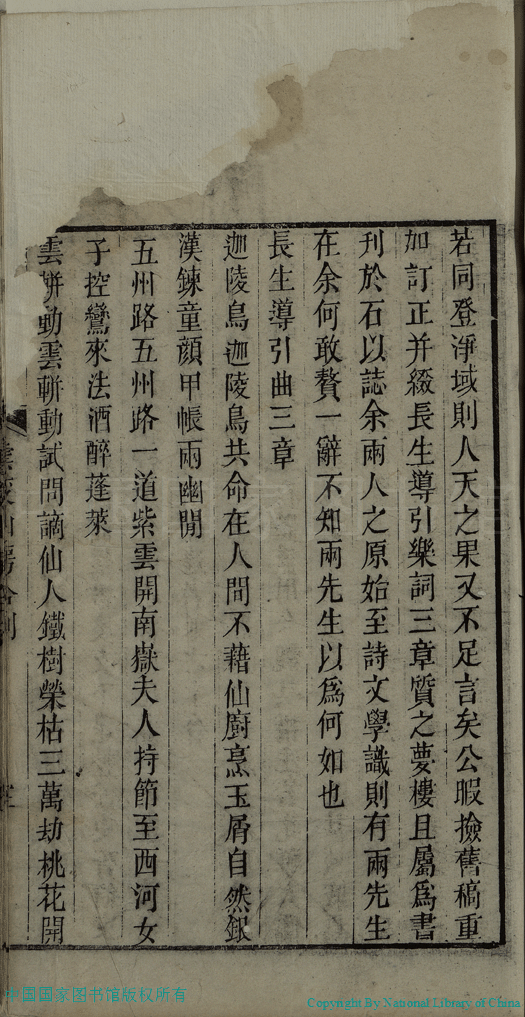 若同登淨域則人天之果又不足言矣公暇撿舊稿重
加訂正并綴長生導引樂詞三章質之夢樓且屬爲書
刋於石以誌余兩人之原始至詩文學識則有兩先生
在余何敢贅一辭不知兩先生以爲何如也
長生導引曲三章
迦陵鳥迦陵鳥共命在人間不藉仙廚烹玉屑自然銀
漢鍊童顔甲帳兩幽閒
五州路五州路一道紫雲開南嶽夫人持節至西河女
子控鸞來法酒醉蓬萊
雲軿動雲軿動試問謫仙人鐵樹榮枯三萬劫桃花開
中国国家图书馆版权所有
Copyright By National Library of China